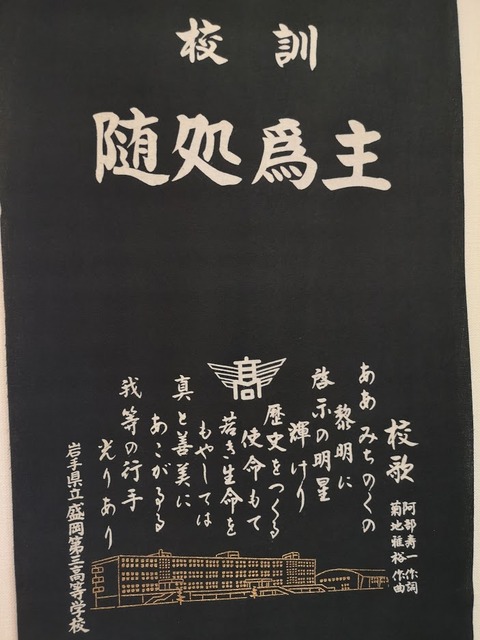 校訓
随処為主
高
校歌
阿部寿一作詞
菊地雅裕作曲
ああみちのくの
黎明に
啓示の明星
輝けり
歴史をつくる
使命もて
若き生命を
もやしては
真と善美に
あこがるる
我等の行手
光りあり
岩手県立盛岡第三高等学校